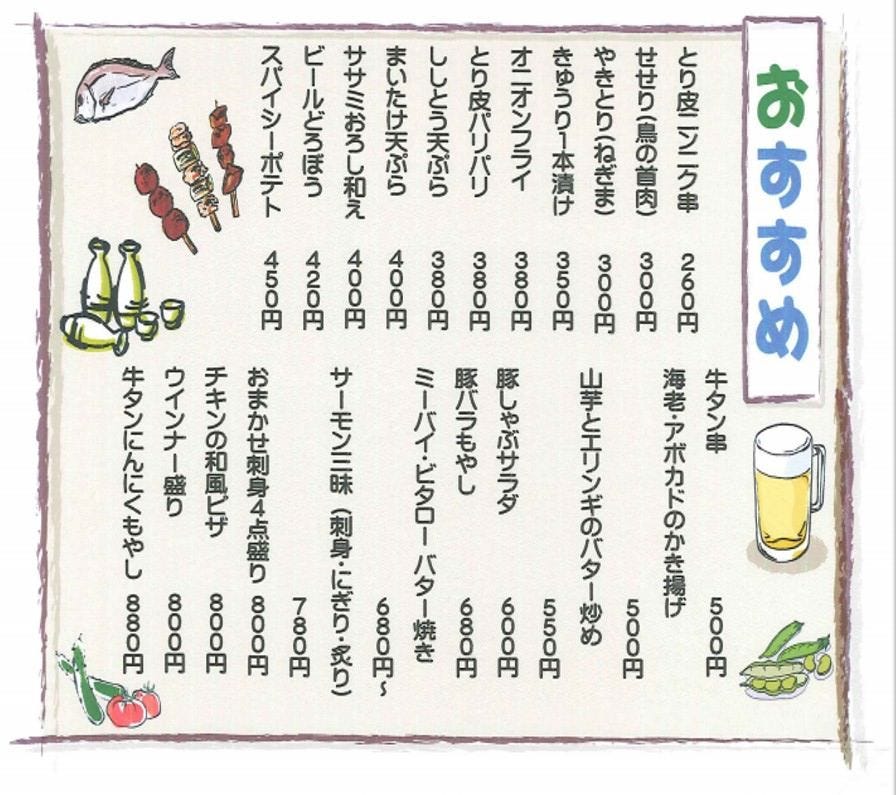 おすすめ
とり皮ニンニク串 260円
せせり(鳥の首肉) 300円
やきとり(ねぎま) 300円
きゅうり1本漬け 350円
オニオンフライ 380円
とり皮パリパリ 380円
ししとう天ぷら 380円
まいたけ天ぷら 400円
ササミおろし和え 400円
ビールどろぼう 420円
スパイシーポテト 450円
牛タン串 500円
海老・アボカドのかき揚げ
500円
山芋とエリンギのバター炒め
550円
豚しゃぶサラダ 600円
豚バラもやし 680円
ミーバイ・ビタロー バター焼き
680円～
サーモン三昧(刺身・にぎり・炙り)
780円
おまかせ刺身4点盛り 800円
チキンの和風ピザ 800円
ウインナー盛り 800円
牛タンにんにくもやし 880円